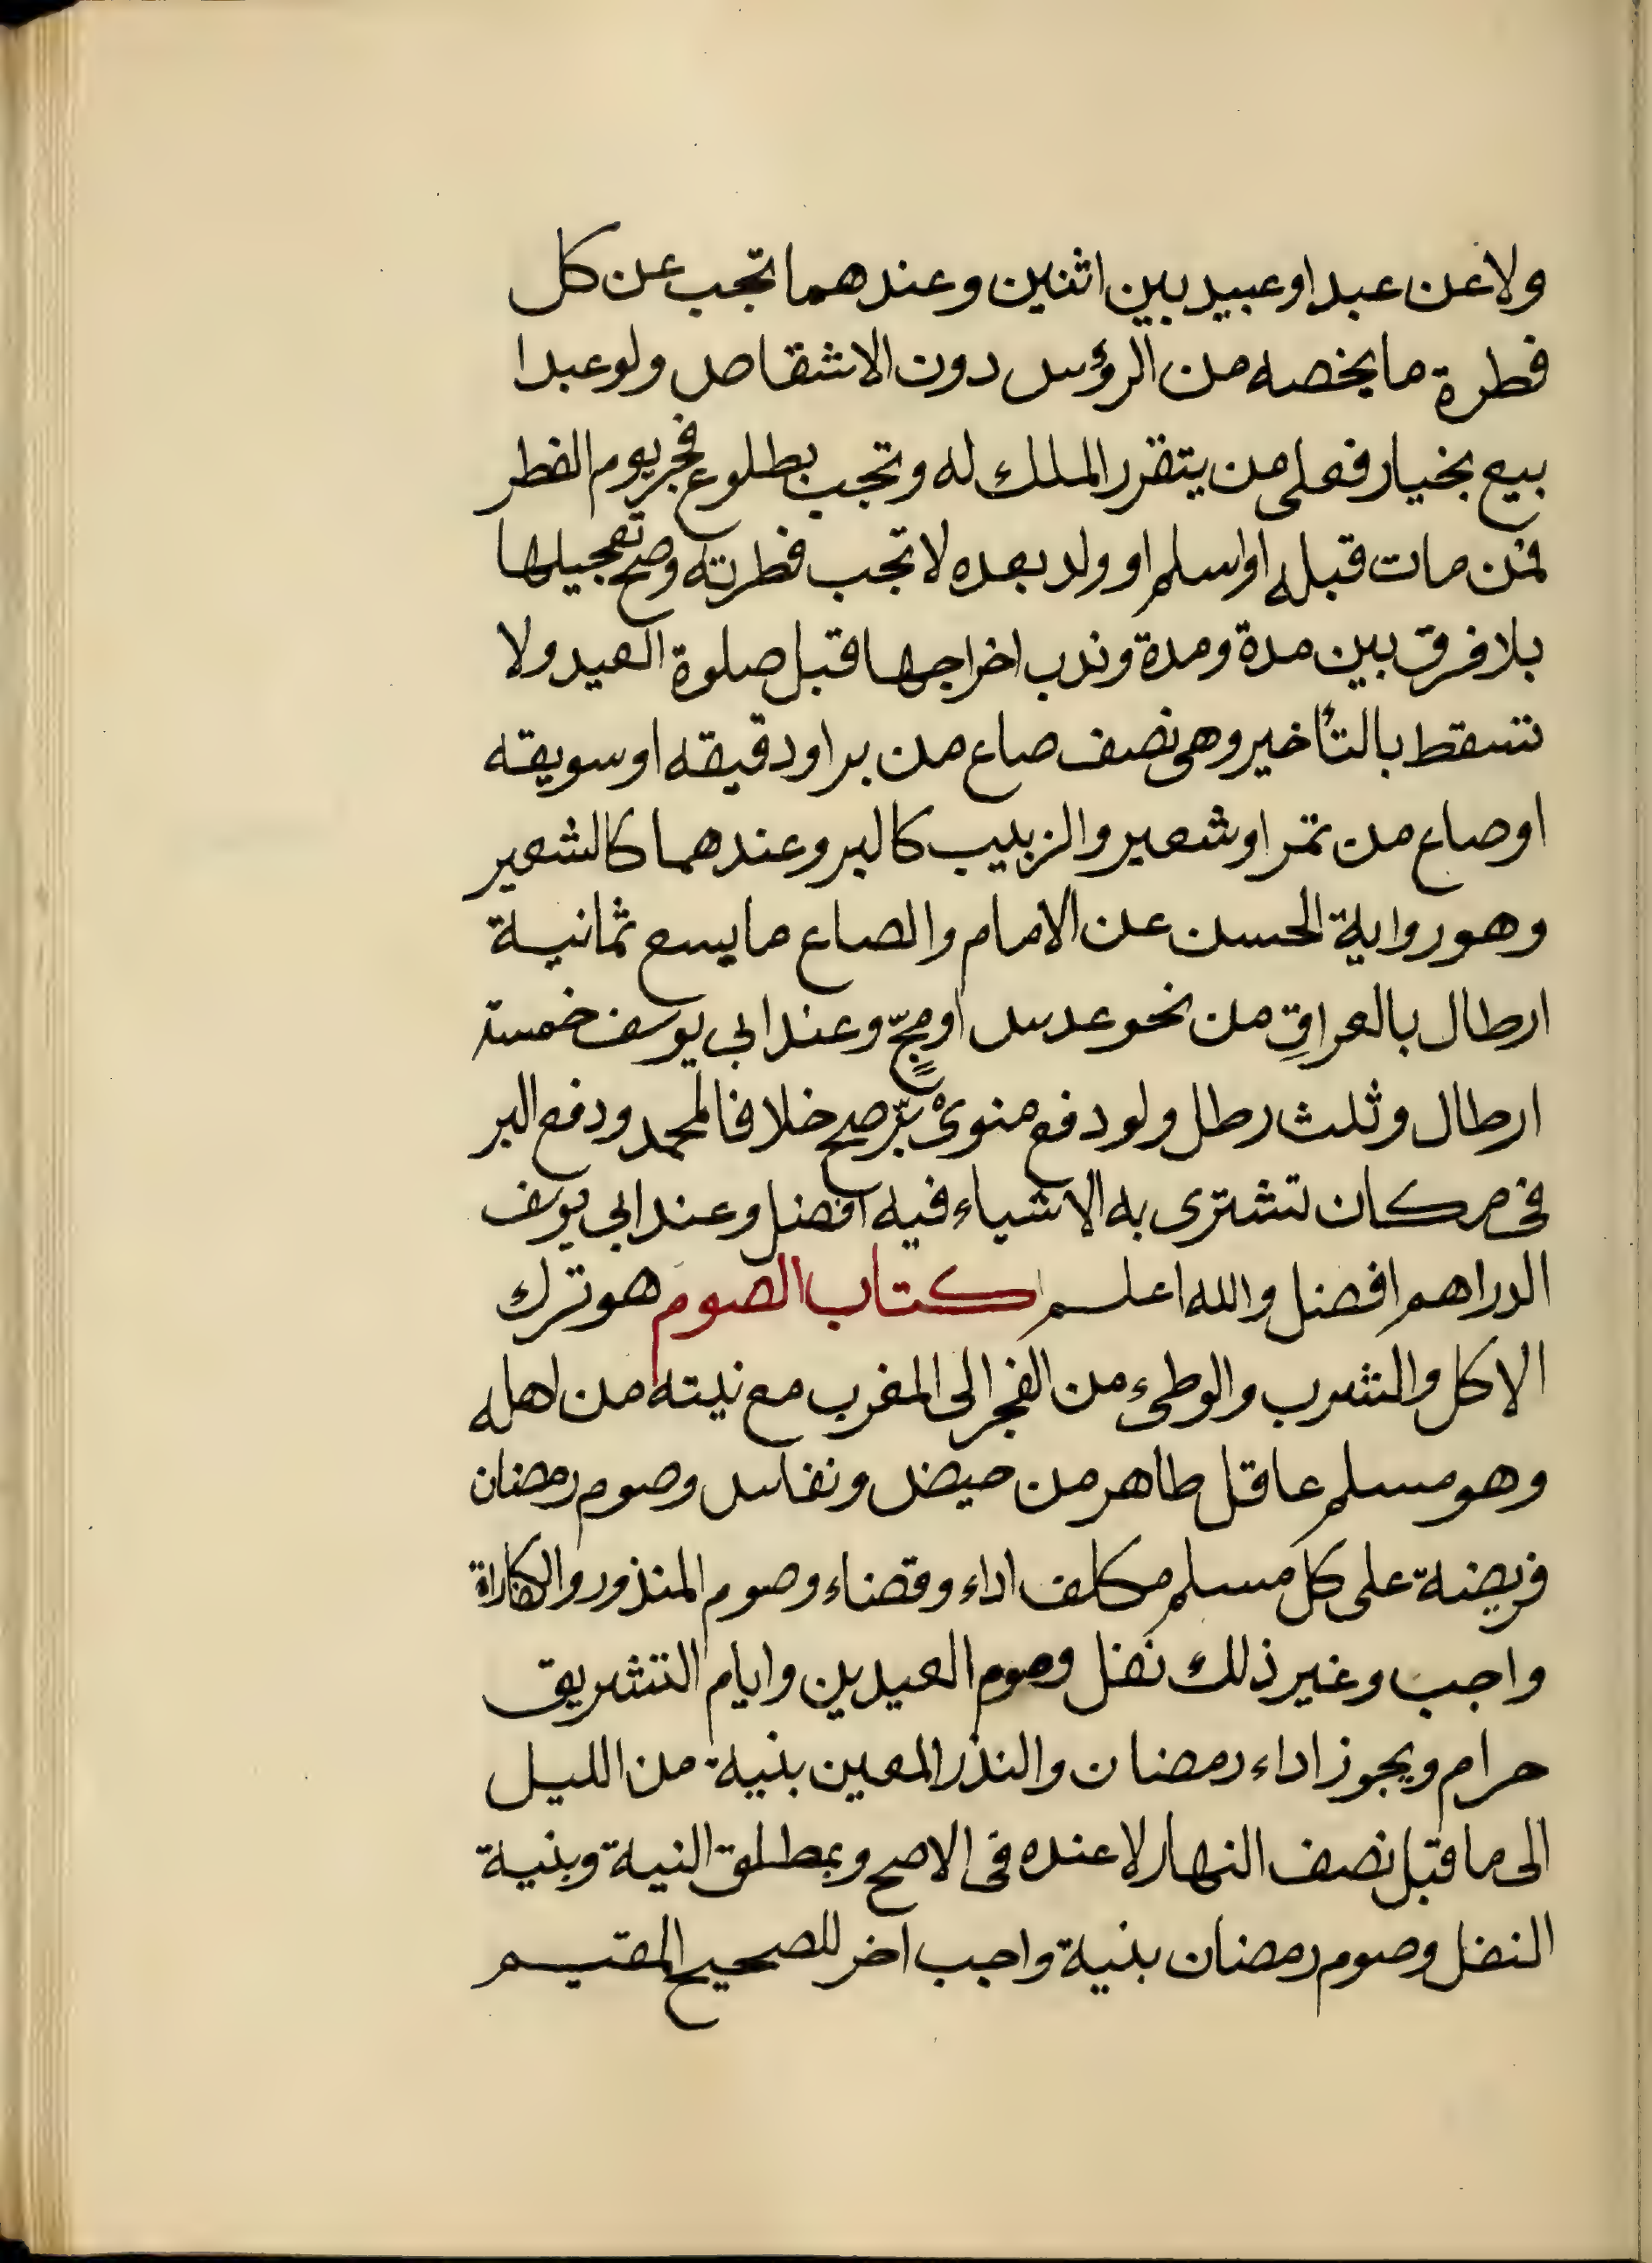 ولا عن عبد او عبيد بين اثنين وعندهما تجب عن كل
فطرة ما يخصه من الرؤس دون الاشقاص ولو عبدا
بيع بخيار فعلى من يتقرر الملك له وتجب بطلوع فجر يوم الفطر
فمن مات قبله او اسلم او ولد بعده لا تجب فطرته وصح تعجيلها
بلا فرق بين مدة ومدة وندب اخراجها قبل صلوة العيد ولا
تسقط بالتأخير وهى نصف صاع من بر او دقيقه او سويقه
او صاع من تمر او شعير والزبيب كالبر وعندهما كالشعير
وهو رواية الحسن عن الامام والصاع ما يسع ثمانية
ارطال بالعراقِ من نحو عدس او مجّ وعند ابى يوسف خمسة
ارطال وثلث رطل ولو دفع منوىْ برّ صح خلافا لمحمد ودفع البر
فى مكان تشترى به الاشياء فيه افضل وعند ابى يوسف
الدراهم افضل والله اعلم كتاب الصوم هو ترك
الاكل والشرب والوطىء من الفجر الى المغرب مع نيته من اهله
وهو مسلم عاقل طاهر من حيض ونفاس وصوم رمضان
فريضة على كل مسلم مكلف اداء وقضاء وصوم المنذور والكفارة
واجب وغير ذلك نفل وصوم العيدين وايام التشريق
حرام ويجوز اداء رمضان والنذر المعين بنية من الليل
الى ما قبل نصف النهار لا عنده فى الاصح وبمطلق النية وبنية
النفل وصوم رمضان بنية واجب اخر للصحيح المقيم